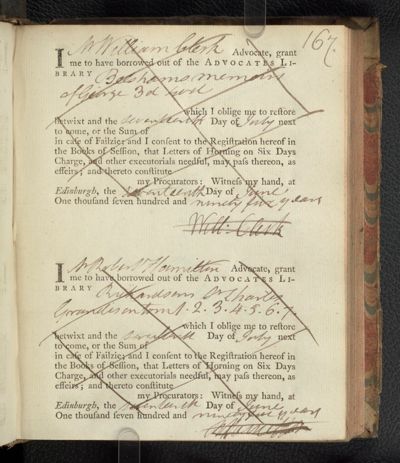 167.
I Mr William Clerk Advocate, grant
me to have borrowed out of the ADVOCATES LI-
BRARY Belshams memoirs
of George 3d 4 vol
which I oblige me to reſtore
betwixt and the seventeenth Day of July next
to come, or the Sum of
in caſe of Failzie; and I conſent to the Regiſtration hereof in
the Books of Seſſion, that Letters of Horning on Six Days
Charge, and other executorials needful, may paſs thereon, as
effeirs; and thereto conſtitute
my Procurators: Witneſs my hand, at
Edinburgh, the seventeenth Day of June
One thouſand ſeven hundred and ninety five years
Will: Clerk
I Mr Robert Hamilton Advocate, grant
me to have borrowed out of the ADVOCATES LI-
BRARY Richardsons Sr Charles
Grandison tom 1. 2. 3. 4. 5. 6. 7.
which I oblige me to reſtore
betwixt and the seventeenth Day of July next
to come, or the Sum of
in caſe of Failzie; and I conſent to the Regiſtration hereof in
the Books of Seſſion, that Letters of Horning on Six Days
Charge, and other executorials needful, may paſs thereon, as
effeirs; and thereto conſtitute
my Procurators: Witneſs my hand, at
Edinburgh, the seventeenth Day of June
One thouſand ſeven hundred and ninety five years